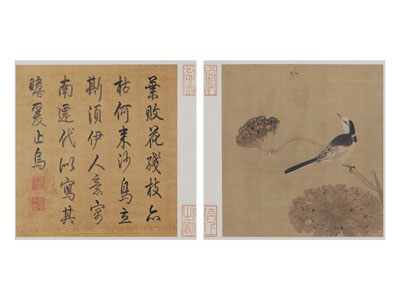 葉敗花殘枝亦
枯何来沙鳥立
斯須伊人意寄
南遷代以寫其
瞻爰止烏